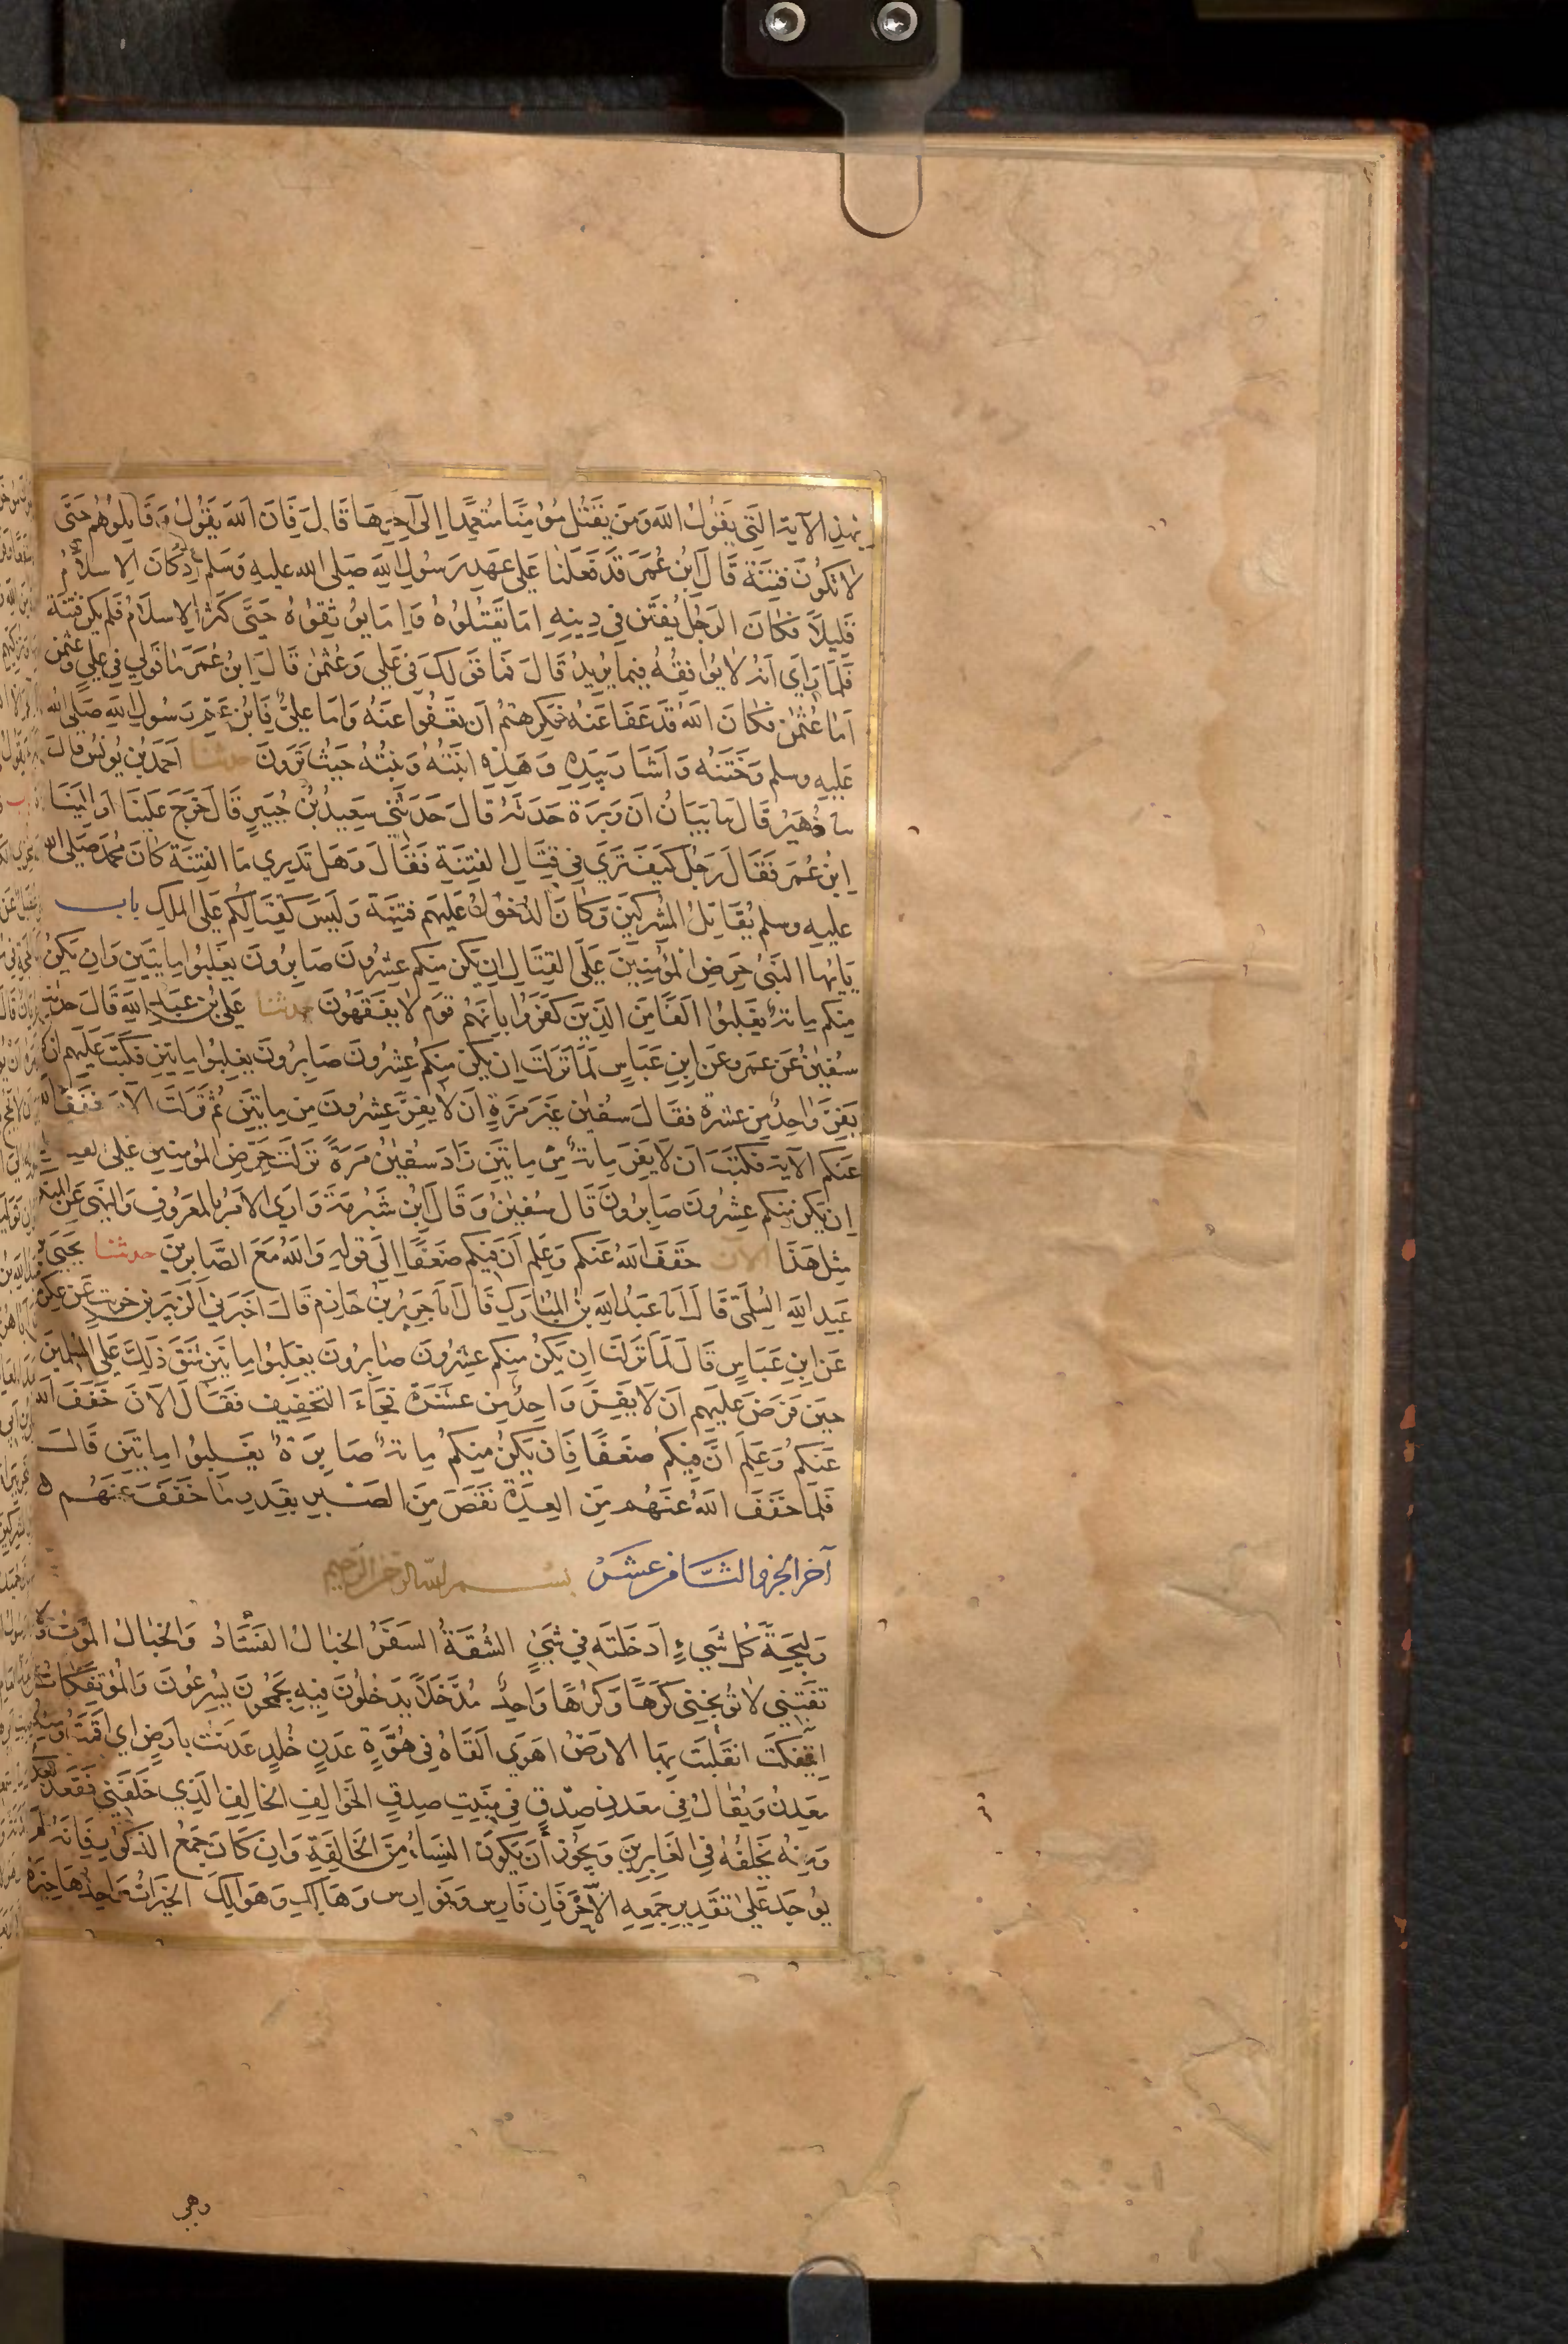 بهذه الآية التي يقول الله وَمَن يَقتُل مُؤمِنًا مُتعمِّدًا إلى آخِرِهَا قَالَ فَإِن الله يَقُولُ وَقَاتِلُوهُم حَتَّى
لاَ تَكُونَ فِتنَة قَالَ ابن عُمَرَ قَد فَعَلنَا عَلى عَهدِ رَسُولِ الله صَلى الله عليه وَسَلم إذ كَانَ الإسلاَمُ
قَلِيلاً فكَانَ الرَجُل يُفتَن فِي دِينِهِ إمَا يَقتُلُوهُ وَإمَا يُوثِقُوهُ حَتَّى كَثُرَ الإسلاَمُ فَلم يكن فِتنَة
فَلَمَا رَأى أنَهُ لا يُوَافِقُهُ فِيمَا يُرِيدُ قَالَ فَمَا قَولكَ فِي عَلي وَعُثمن قَالَ ابنُ عُمَرَ مَا قَولي فِي عَلي وَعُثمن
أمَا عُثمن فكَانَ الله قَد عَفَا عَنهُ فكَرِهتُم أن تَعفُوا عَنهُ وَأمَا عَليٌّ فَابنُ عَمِّ رَسُول الله صَلى الله
عَليهِ وسلم وَخَتَنُه وَأشَارَ بِيَدِهِ وَهَذِهِ ابنَتُهُ وَبنتُهُ حَيثُ تَرَونَ حدثنا أحمَدُ بن يُونس قَالَ
نا زُهَير قَالَ نا بَيَانُ أن وَبَرَة حَدثَهُ قَالَ حَدَثَنِي سَعِيدُ بنُ جُبَيرٍ قَالَ خَرَجَ عَلَينَا أو إلَينَا
ابنُ عُمَر فَقَالَ رَجُل كَيفَ تَرَى فِي قِتَالِ الفِتنَةِ فَقَالَ وَهَل تَدرِي مَا الفِتنَة كَانَ محمَد صَلى الله
عليهِ وسلم يُقَاتِلُ المُشرِكِينَ وَكَانَ الدُخُولُ عَلَيهِم فِتنَة وَلَيسَ كَقِتَالِكُم عَلى المُلكِ باب
يَايُّها النَبيُّ حَرِّضِ المُؤمِنِينَ عَلَى القِتَالِ إن يَكُن مِنكم عِشرُونَ صَابِرُونَ يغلبُوا مِايتَين وَإن يَكُن
مِنكم مِائة يَغلِبُوا ألفًا مِنَ الذِينَ كَفَرُوا بِأنَهُم قَوم لا يَفقَهُونَ حدثنا عَلي بن عَبدِ الله قَالَ حدثنا
سُفينُ عَن عَمرٍو عَن ابنِ عَبَاسٍ لَمَا نَزَلَت إن يكن مِنكم عِشرُونَ صَابِرُونَ يغلِبُوا مِايتَين فكُتِبَ عَلَيهِم أن لا
يَفِرَّ وَاحِدٌ مِن عَشرَة فَقَالَ سُفين غَيرَ مَرَةٍ أن لا يفِرَّ عِشرُونَ مِن مِايتَين ثُم نَزَلَت الآنَ خَفَفَ الله
عَنكم الآيَة فكَتَبَ أن لا يَفِرَ مِائة مِن مِايتَين زَادَ سُفينُ مَرَةً نَزَلَت حَرِّض المُؤمِنِين عَلى القِتال
إن يَكُن مِنكم عِشرُونَ صَابِرُونَ قَالَ سُفينُ وَقَالَ ابنُ شُبرُمَةَ وَأرَى الأمرَ بِالمَعرُوفِ وَالنَهيَ عَنِ المُنكر
مِثلَ هَذَا الآن خَفَفَ الله عَنكم وَعَلِم أن فِيكم ضَعفًا إلَى قَولِهِ وَالله مَعَ الصَّابرِينَ حدثنا يَحيَى بن
عَبدِ الله السُلَمِيّ قَالَ أنا عَبدُ الله بن المُبَارَك قَالَ أنا جَرِيرُ بنُ حَازِم قَالَ أخبَرَنِي الزُبَير بن خريت عَن عِكرمة
عَن ابنِ عَبَاسٍ قَالَ لَمَا نَزَلَت إن يَكُن مِنكم عِشرُونَ صَابِرُونَ يغلِبُوا مِايتَين شَقَ ذَلِكَ عَلَى المُسلمين
حِينَ فَرَضَ عَلَيهِم أن لا يَفِرَّ وَاحِدٌ مِن عَشَرَة فَجَاءَ التخفِيف فَقَالَ الآنَ خَفَفَ الله
عَنكم وَعَلِمَ أنَّ فِيكُم ضَعفًا فَإن يَكُن مِنكُم مِائةٌ صَابِرَةٌ يَغلِبُوا مِايتَين قَالَ
فَلَمَا خَفَفَ الله عَنهُم مِنَ العِدَةِ نَقَصَ مِنَ الصَبرِ بِقَدرِ مَا خَفَفَ عَنهُم
آخر الجزو الثَّاني عَشَر بسم الله الرحمن الرحيم
وَلِيجَةً كُل شَيءٍ أدخَلتَه فِي شَيٍ الشُقَةُ السَفَرُ الخبَال الفَسَادُ وَالخبَال المَوت وَلا
تَفتِنِي لا تُوَبّخنِي كَرهًا وَكُرهًا وَاحِدٌ مُدَّخَلاً يَدخُلُونَ فِيهِ يَجمَحُونَ يُسرِعُونَ وَالمُؤتَفِكَات
ائتفَكَت انقَلَبَت بِهَا الأرض أهوَى ألقَاهُ فِي هُوَّةٍ عَدنٍ خُلدٍ عَدَنتُ بأرضٍ أي أقَمتُ وَمنه
مَعدِنُ وَيُقَالُ فِي مَعدِنِ صِدقٍ فِي مَنبتِ صِدقٍ الخَوَالِف الخالِفُ الَذِي خَلَفَنِي فَقَعَدَ بعدي
وَمِنهُ يَخلُفُهُ فِي الغَابِرِينَ وَيجُوزُ أن يَكُونَ النِسَاءُ مِنَ الخَالِفَةِ وَإن كَانَ جَمعُ الذكُورِ فَإنَهُ لَم
يُوجَد عَلى تَقدِيرِ جَمعِهِ إلا حَرفَانِ فَارِس وَفَوَارِس وَهَالِك وَهَوَالِك الخَيرَاتُ وَاحِدُها خَيرَة
وهي